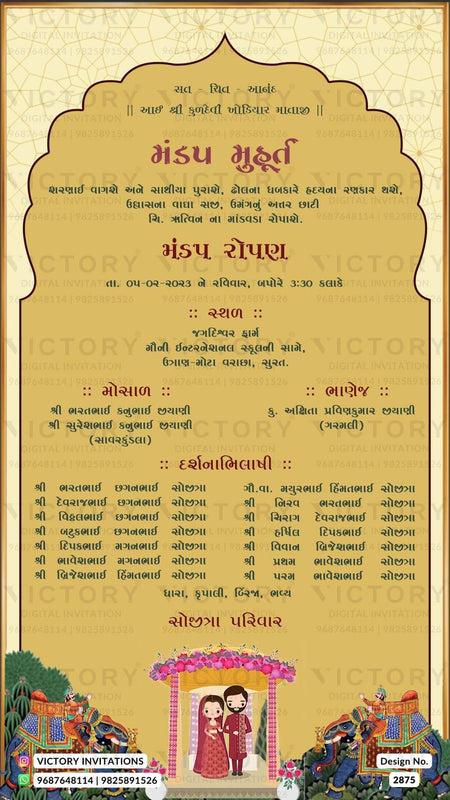 સત - ચિત - આનંદ
|| આઈ શ્રી કુળદેવી ખોડિયાર માતાજી ||
મંડપ મુહૂર્ત
શરણાઈ વાગશે અને સાથીયા પુરાશે, ઢોલના ધબકારે હૃદયના રણકાર થશે,
ઉલ્લાસના વાઘા સજી, ઉમંગનું અત્તર છાટી
ચિ. ઋત્વિન ના માંડવડા રોપાશે.
મંડપ રોપણ
તા. ૦૫-૦૨-૨૦૨૩ ને રવિવાર, બપોરે 3:30 કલાકે
:: સ્થળ ::
જગદિશ્વર ફાર્મ
મૌની ઈન્ટરનેશનલ સ્કૂલની સામે,
ઉત્રાણ-મોટા વરાછા, સુરત.
:: મોસાળ ::
શ્રી ભરતભાઈ કનુભાઈ જીયાણી
શ્રી સુરેશભાઈ કનુભાઈ જીયાણી
(સાવરકુંડલા)
:: ભાણેજ ::
કુ. અક્ષિતા પ્રવિણકુમાર જીયાણી
(ગરમલી)
:: દર્શનાભિલાષી ::
શ્રી ભરતભાઈ છગનભાઈ સોજીત્રા
શ્રી દેવરાજભાઈ છગનભાઈ સોજીત્રા
શ્રી વિઠ્ઠલભાઈ છગનભાઈ સોજીત્રા
શ્રી બટુકભાઈ છગનભાઈ સોજીત્રા
શ્રી દિપકભાઈ મગનભાઈ સોજીત્રા
શ્રી ભાવેશભાઈ મગનભાઈ સોજીત્રા
શ્રી બ્રિજેશભાઈ હિંમતભાઈ સોજીત્રા
ગૌ.વા. મયુરભાઈ હિંમતભાઈ સોજીત્રા
શ્રી નિરવ ભરતભાઈ સોજીત્રા
શ્રી ચિરાગ દેવરાજભાઈ સોજીત્રા
શ્રી હર્ષિલ દિપકભાઈ સોજીત્રા
શ્રી વિવાન બ્રિજેશભાઈ સોજીત્રા
શ્રી પ્રથમ ભાવેશભાઈ સોજીત્રા
શ્રી પરમ ભાવેશભાઈ સોજીત્રા
ધારા, કૃપાલી, કિંરજા, ભવ્ય
સોજીત્રા પરિવાર
VICTORY INVITATIONS
9687648114 | 9825891526
Design No.
2875